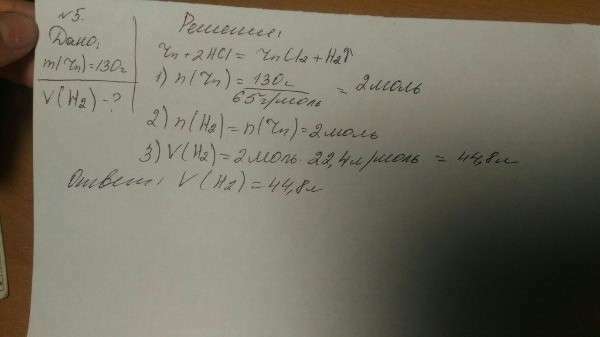 №5.
Дано:
m(Zn)=130г
V(H₂)-?
Решение:
Zn+2HCl=ZnCl₂+H₂↑
1) n(Zn) = 130г / 65г/моль = 2моль
2) n(H₂)=n(Zn)=2моль
3) V(H₂)=2моль·22,4л/моль = 44,8л
Ответ: V(H₂)=44,8л